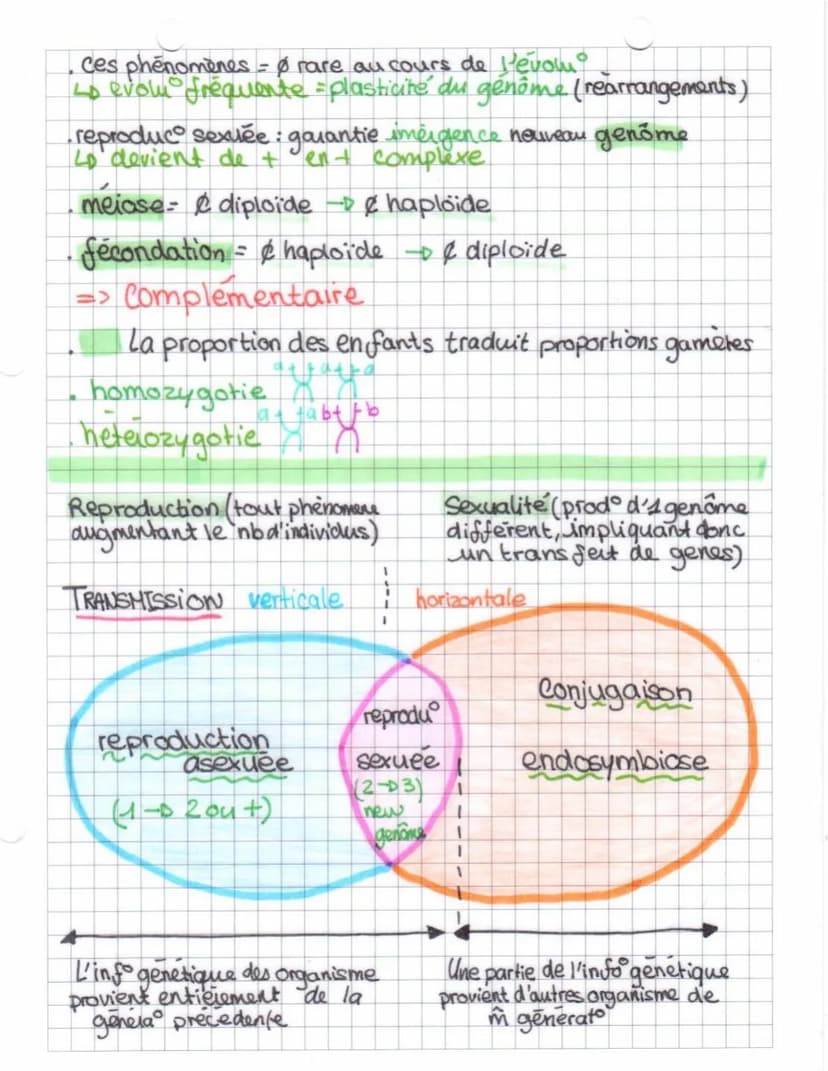 . ces phénomènes = ∅ rare au cours de l'évolu°
↳ evolu° fréquente = plasticité du génôme (réarrangements)
. reproduc° sexuée : garantie imérgence nouveau genôme
↳ devient de + en + complexe
. méiose = ¢ diploïde → ¢ haploïde
. fécondation = ¢ haploïde → ¢ diploïde
=> complémentaire
. La proportion des enfants traduit proportions gamètes
. homozygotie a a a
. hétérozygotie a a b b
Reproduction (tout phénomene
augmentant le nb d'individus)
Sexualité (prod° d'1 genôme
différent, impliquant donc
un transfert de genes)
TRANSMISSION verticale horizontale
reproduction
asexuée
(1 → 2 ou +)
reprodu°
sexuée
(2 → 3)
new
genôme
Conjugaison
endosymbiose
L'inf° génétique des organisme
provient entièrement de la
généra° précédente
Une partie de l'info° génétique
provient d'autres organisme de
m̂ générat°